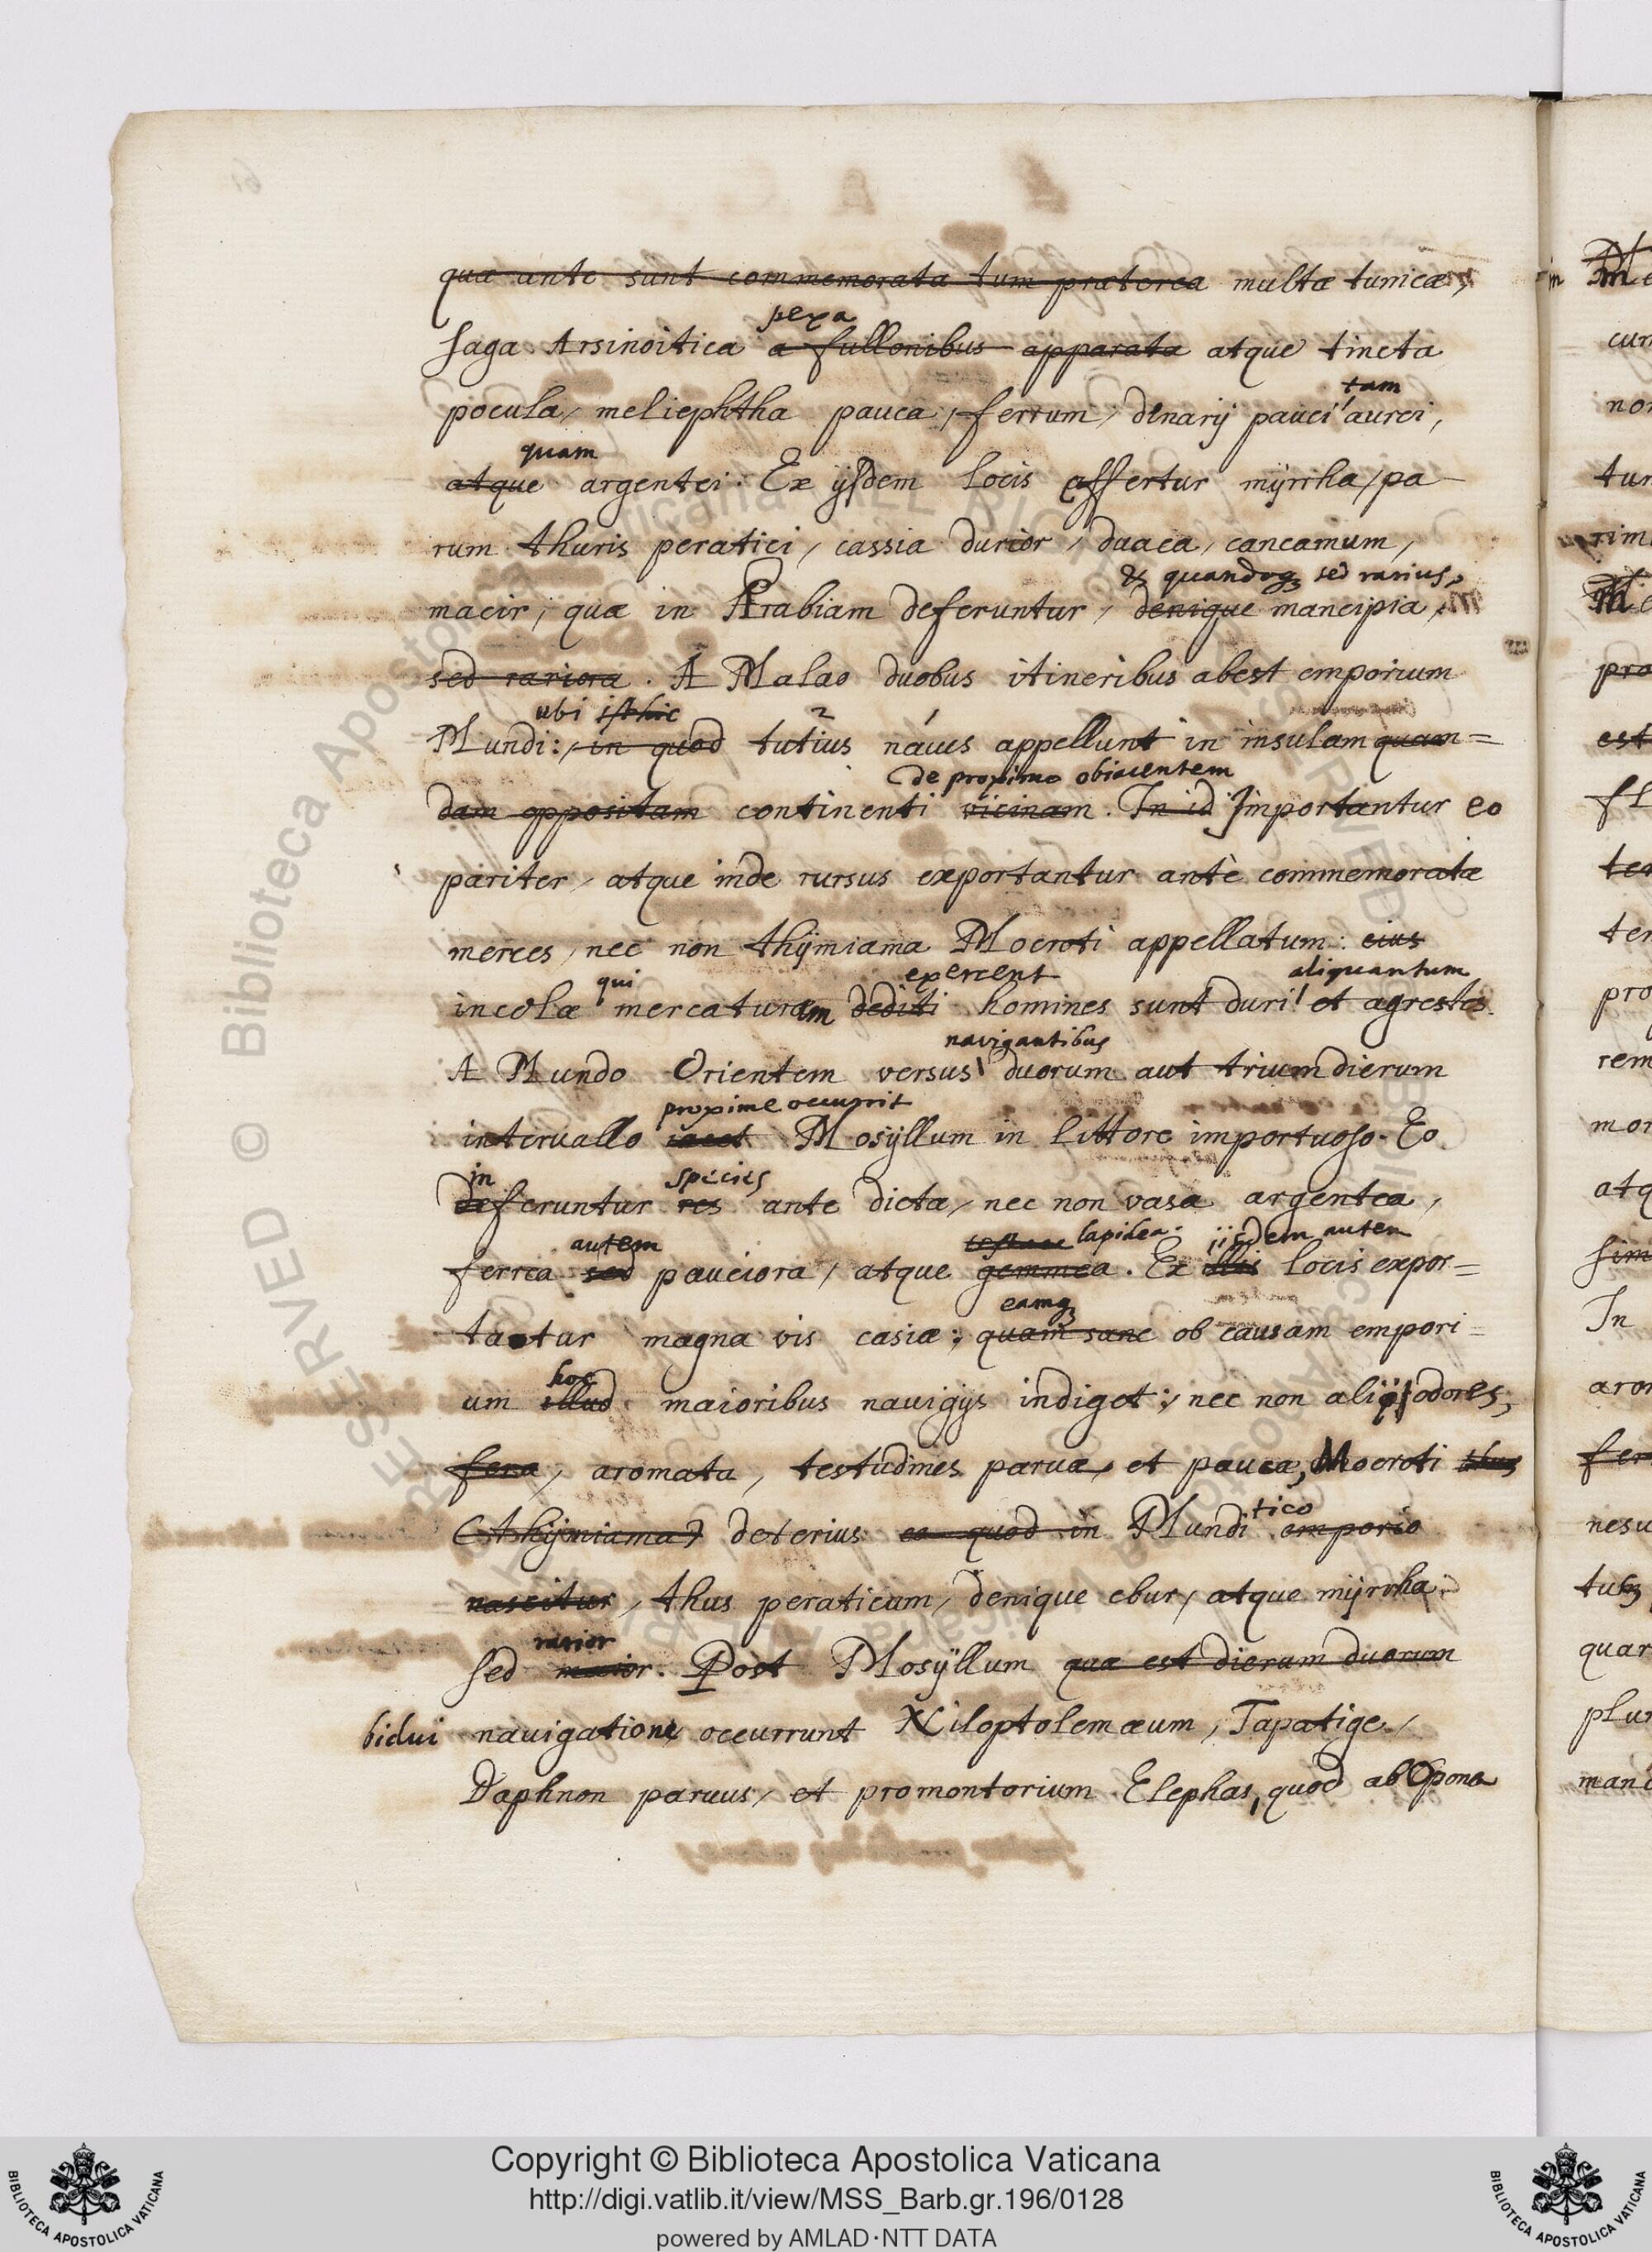 quæ ante sunt commemorata tum præterea multæ tunicæ,
pexa
saga Arsinoitica a fullonibus apparata atque tincta
tam
pocula, meliephtha pauca, ferrum, denarij pauci aurei,
quam
atque argentei. Ex ijsdem locis affertur myrrha, pa-
rum thuris peratici, cassia durior, duaca, cancamum,
& quandoq; sed rarius,
macir, quæ in Arabiam deferuntur, denique mancipia,
sed rariora. A Malao duobus itineribus abest emporium
ubi isthic 2
Mundi: in quod tutius náues appellunt in insulam quam=
de proximo obiacentem
dam oppositam continenti vicinam. In id Importantur eo
pariter, atque inde rursus exportantur antè commemoratæ
merces, nec non thymiama Mocroti appellatum: eius
qui exercent aliquantum
incolæ mercaturam dediti homines sunt duri et agrestes.
navigantibus
A Mundo Orientem versus duorum aut trium dierum
proxime occurrit
interuallo iacet Mosyllum in littore importuoso. Eo
in species
deferuntur res ante dictæ, nec non vasa argentea,
autem lapidea. iisdem autem
ferrea sed pauciora, atque gemmea. Ex illis locis expor=
eamq;
tatur magna vis casiæ; quam sane ob causam empori=
hoc
um illud maioribus nauigijs indiget; nec non alij odores,
fera, aromata, testudines paruæ, et paucæ, Mocroti thus
(thymiama) deterius eo quod in Munditico emporio
nascitur, thus peraticum, denique ebur, atque myrrha
rarior
sed maior. Post Mosyllum quæ est dierum duorum
bidui nauigatione occurrunt Niloptolemæum, Tapatige,
Daphnon paruus, et promontorium Elephas, quod ab Opone
in
© Biblioteca Apostolica Vaticana
Copyright © Biblioteca Apostolica Vaticana
http://digi.vatlib.it/view/MSS_Barb.gr.196/0128
powered by AMLAD·NTT DATA
BIBLIOTECA APOSTOLICA VATICANA
BIBLIOTECA APOSTOLICA VATICANA